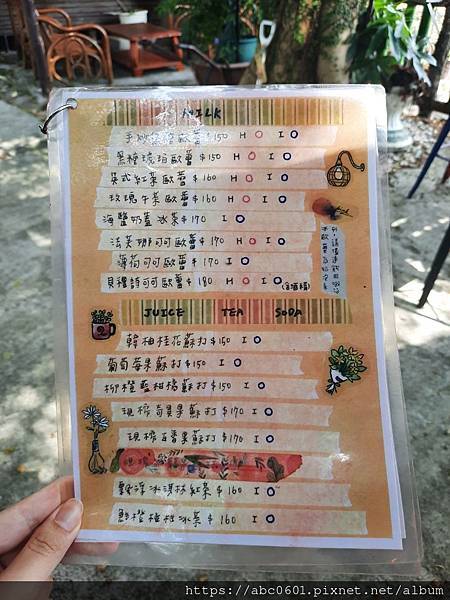 MILK
手炒 歐蕾 $150 H O I O
黑糖琥珀歐蕾 $150 H O I O
英式紅茶歐蕾 $160 H O I O
玫瑰牛茶歐蕾 $160 H O I O
海鹽奶蓋冰茶 $170 I O
法芙娜可可歐蕾 $170 H O I O
薄荷可可歐蕾 $170 I O
貝禮詩可可歐蕾 $180 H O I O
(含酒精)
JUICE TEA SODA
韓柚桂花蘇打 $150 I O
葡萄莓果蘇打 $150 I O
柳橙藍柑橘蘇打 $150 I O
現榨奇異果蘇打 $170 I O
現榨百香果蘇打 $170 I O
飄浮冰淇淋紅茶 $160 I O
鮮橙 冰茶 $160 I O
https://abc0601.pixnet.net/album